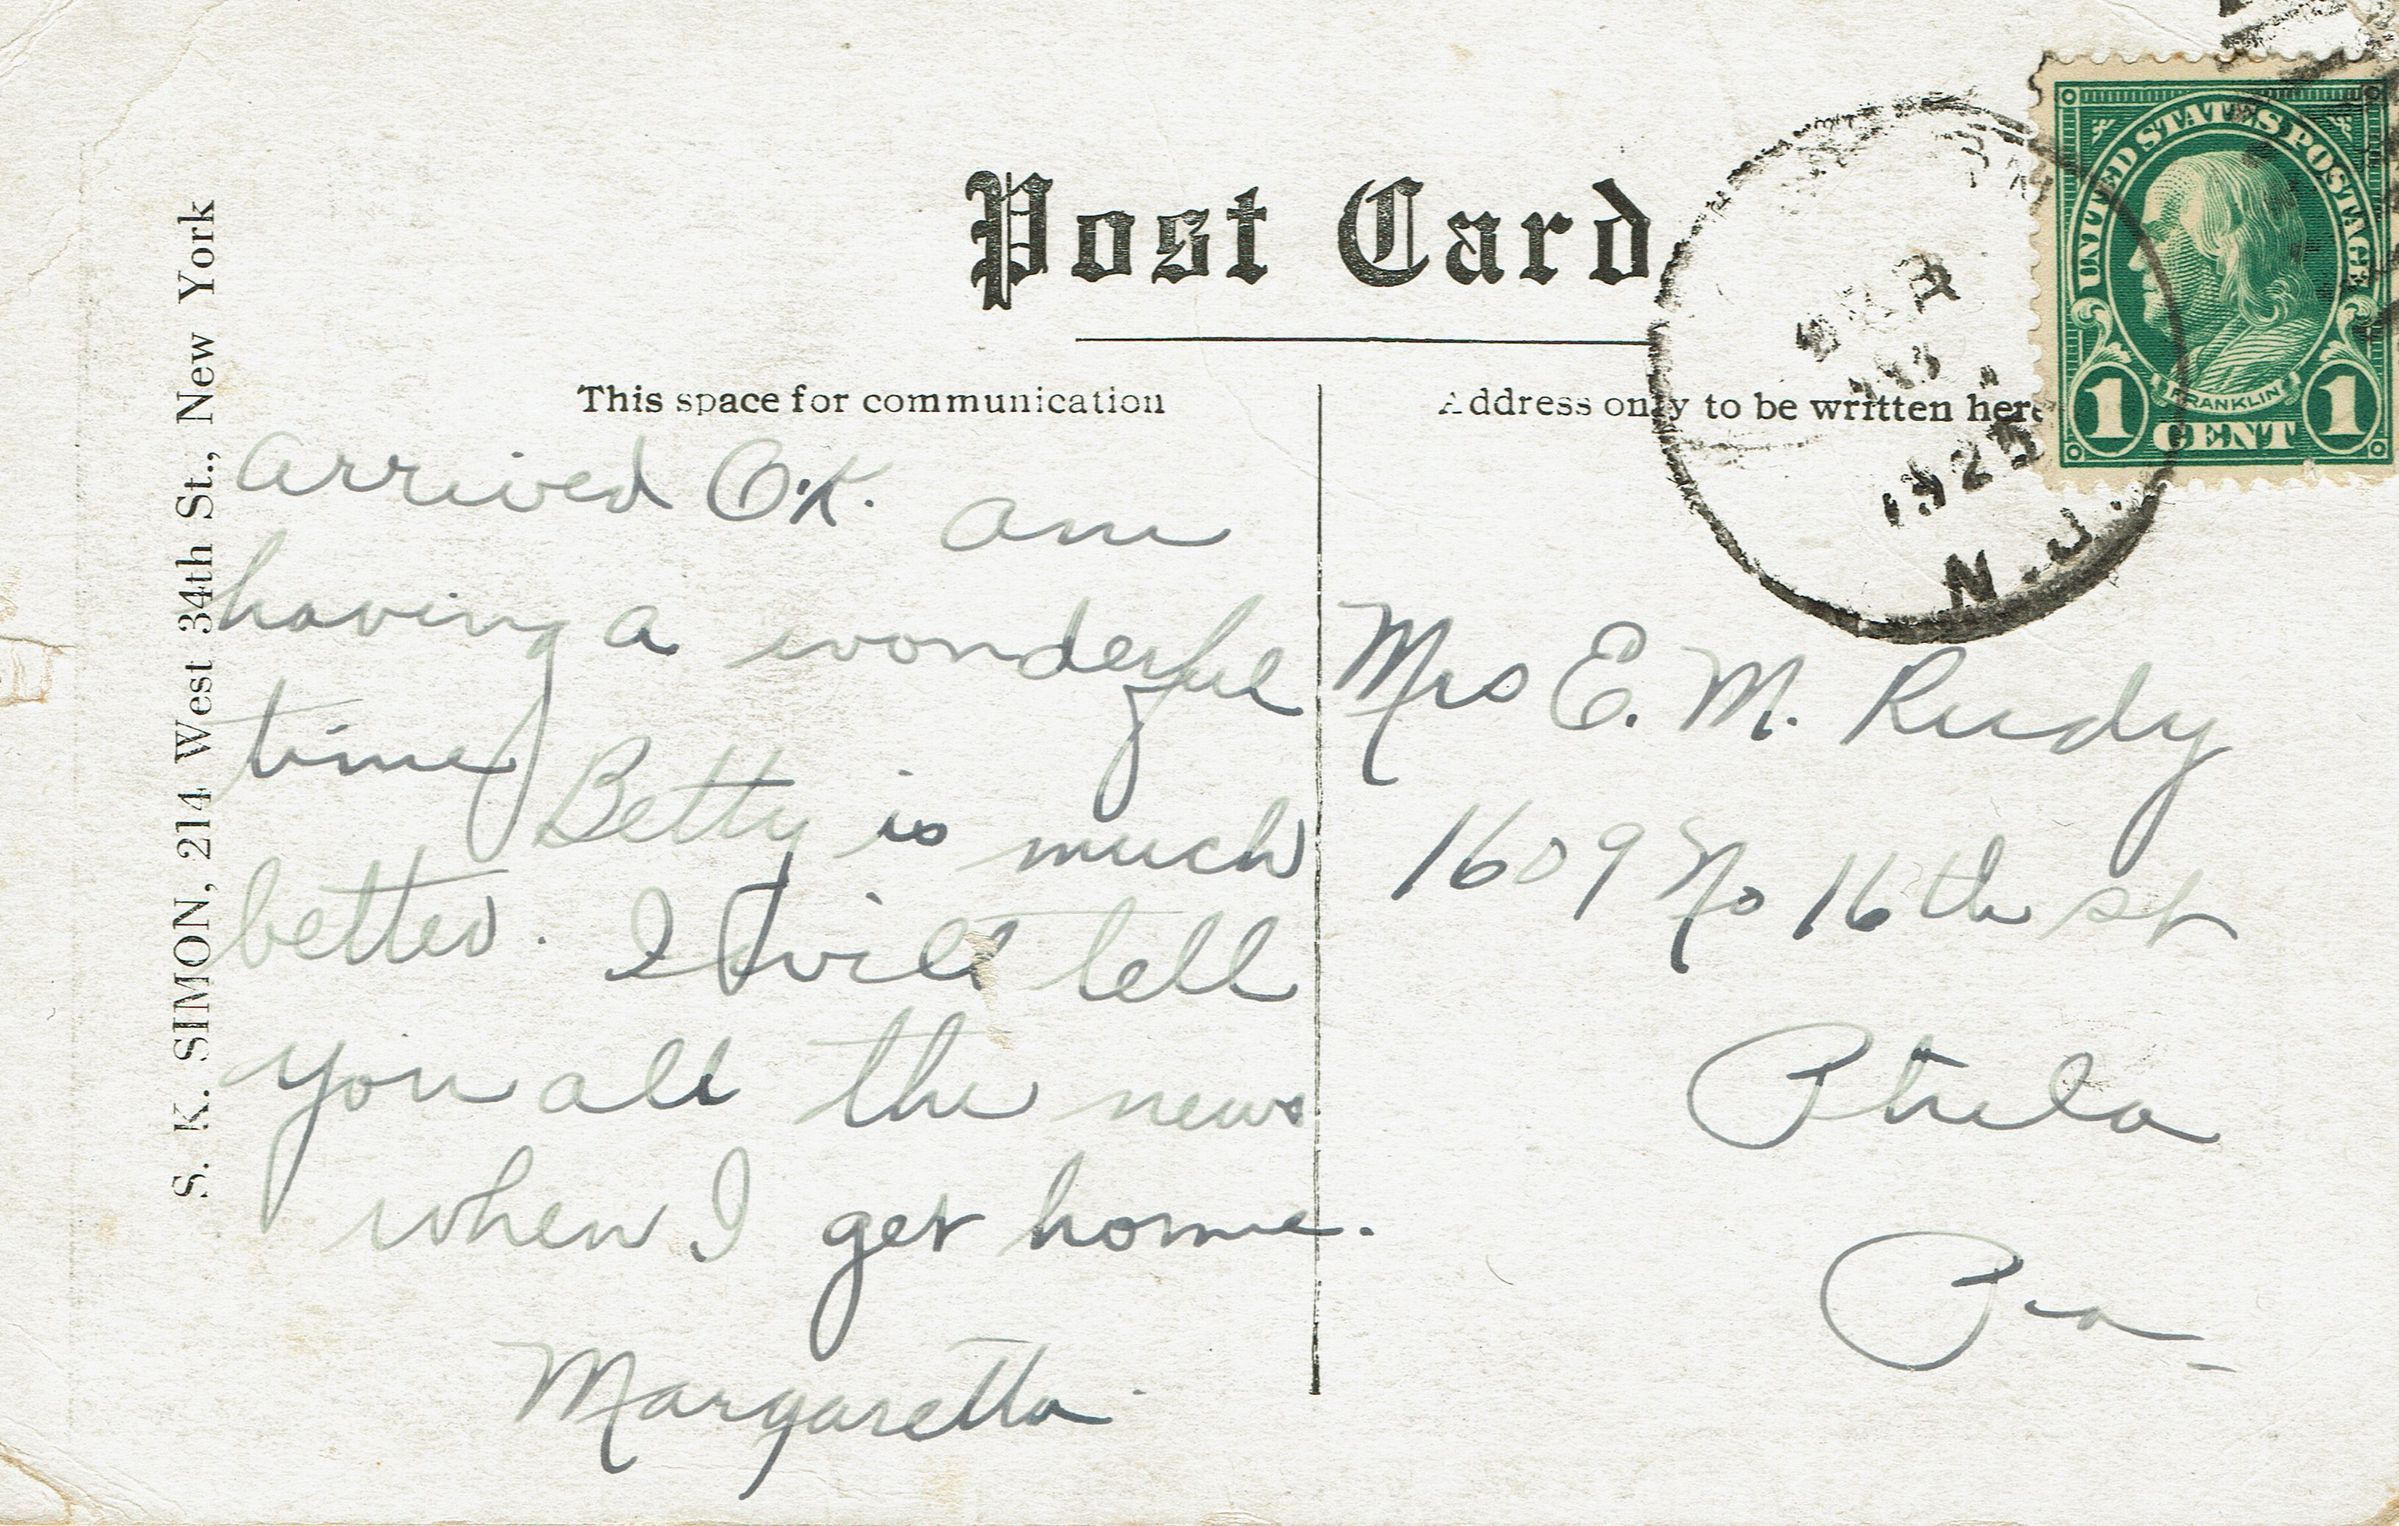 Post Card
S. K. SIMON, 214 West 34th St., New York
This space for communication
Address only to be written here
UNITED STATES POSTAGE
FRANKLIN
1 CENT 1
192
N.J.
arrived O.K. am
having a wonderful
time Betty is much
better. I will tell
you all the news
when I get home.
Margaretta
Mrs E. M. Rudy
1609 No 16th st
Phila
Pa